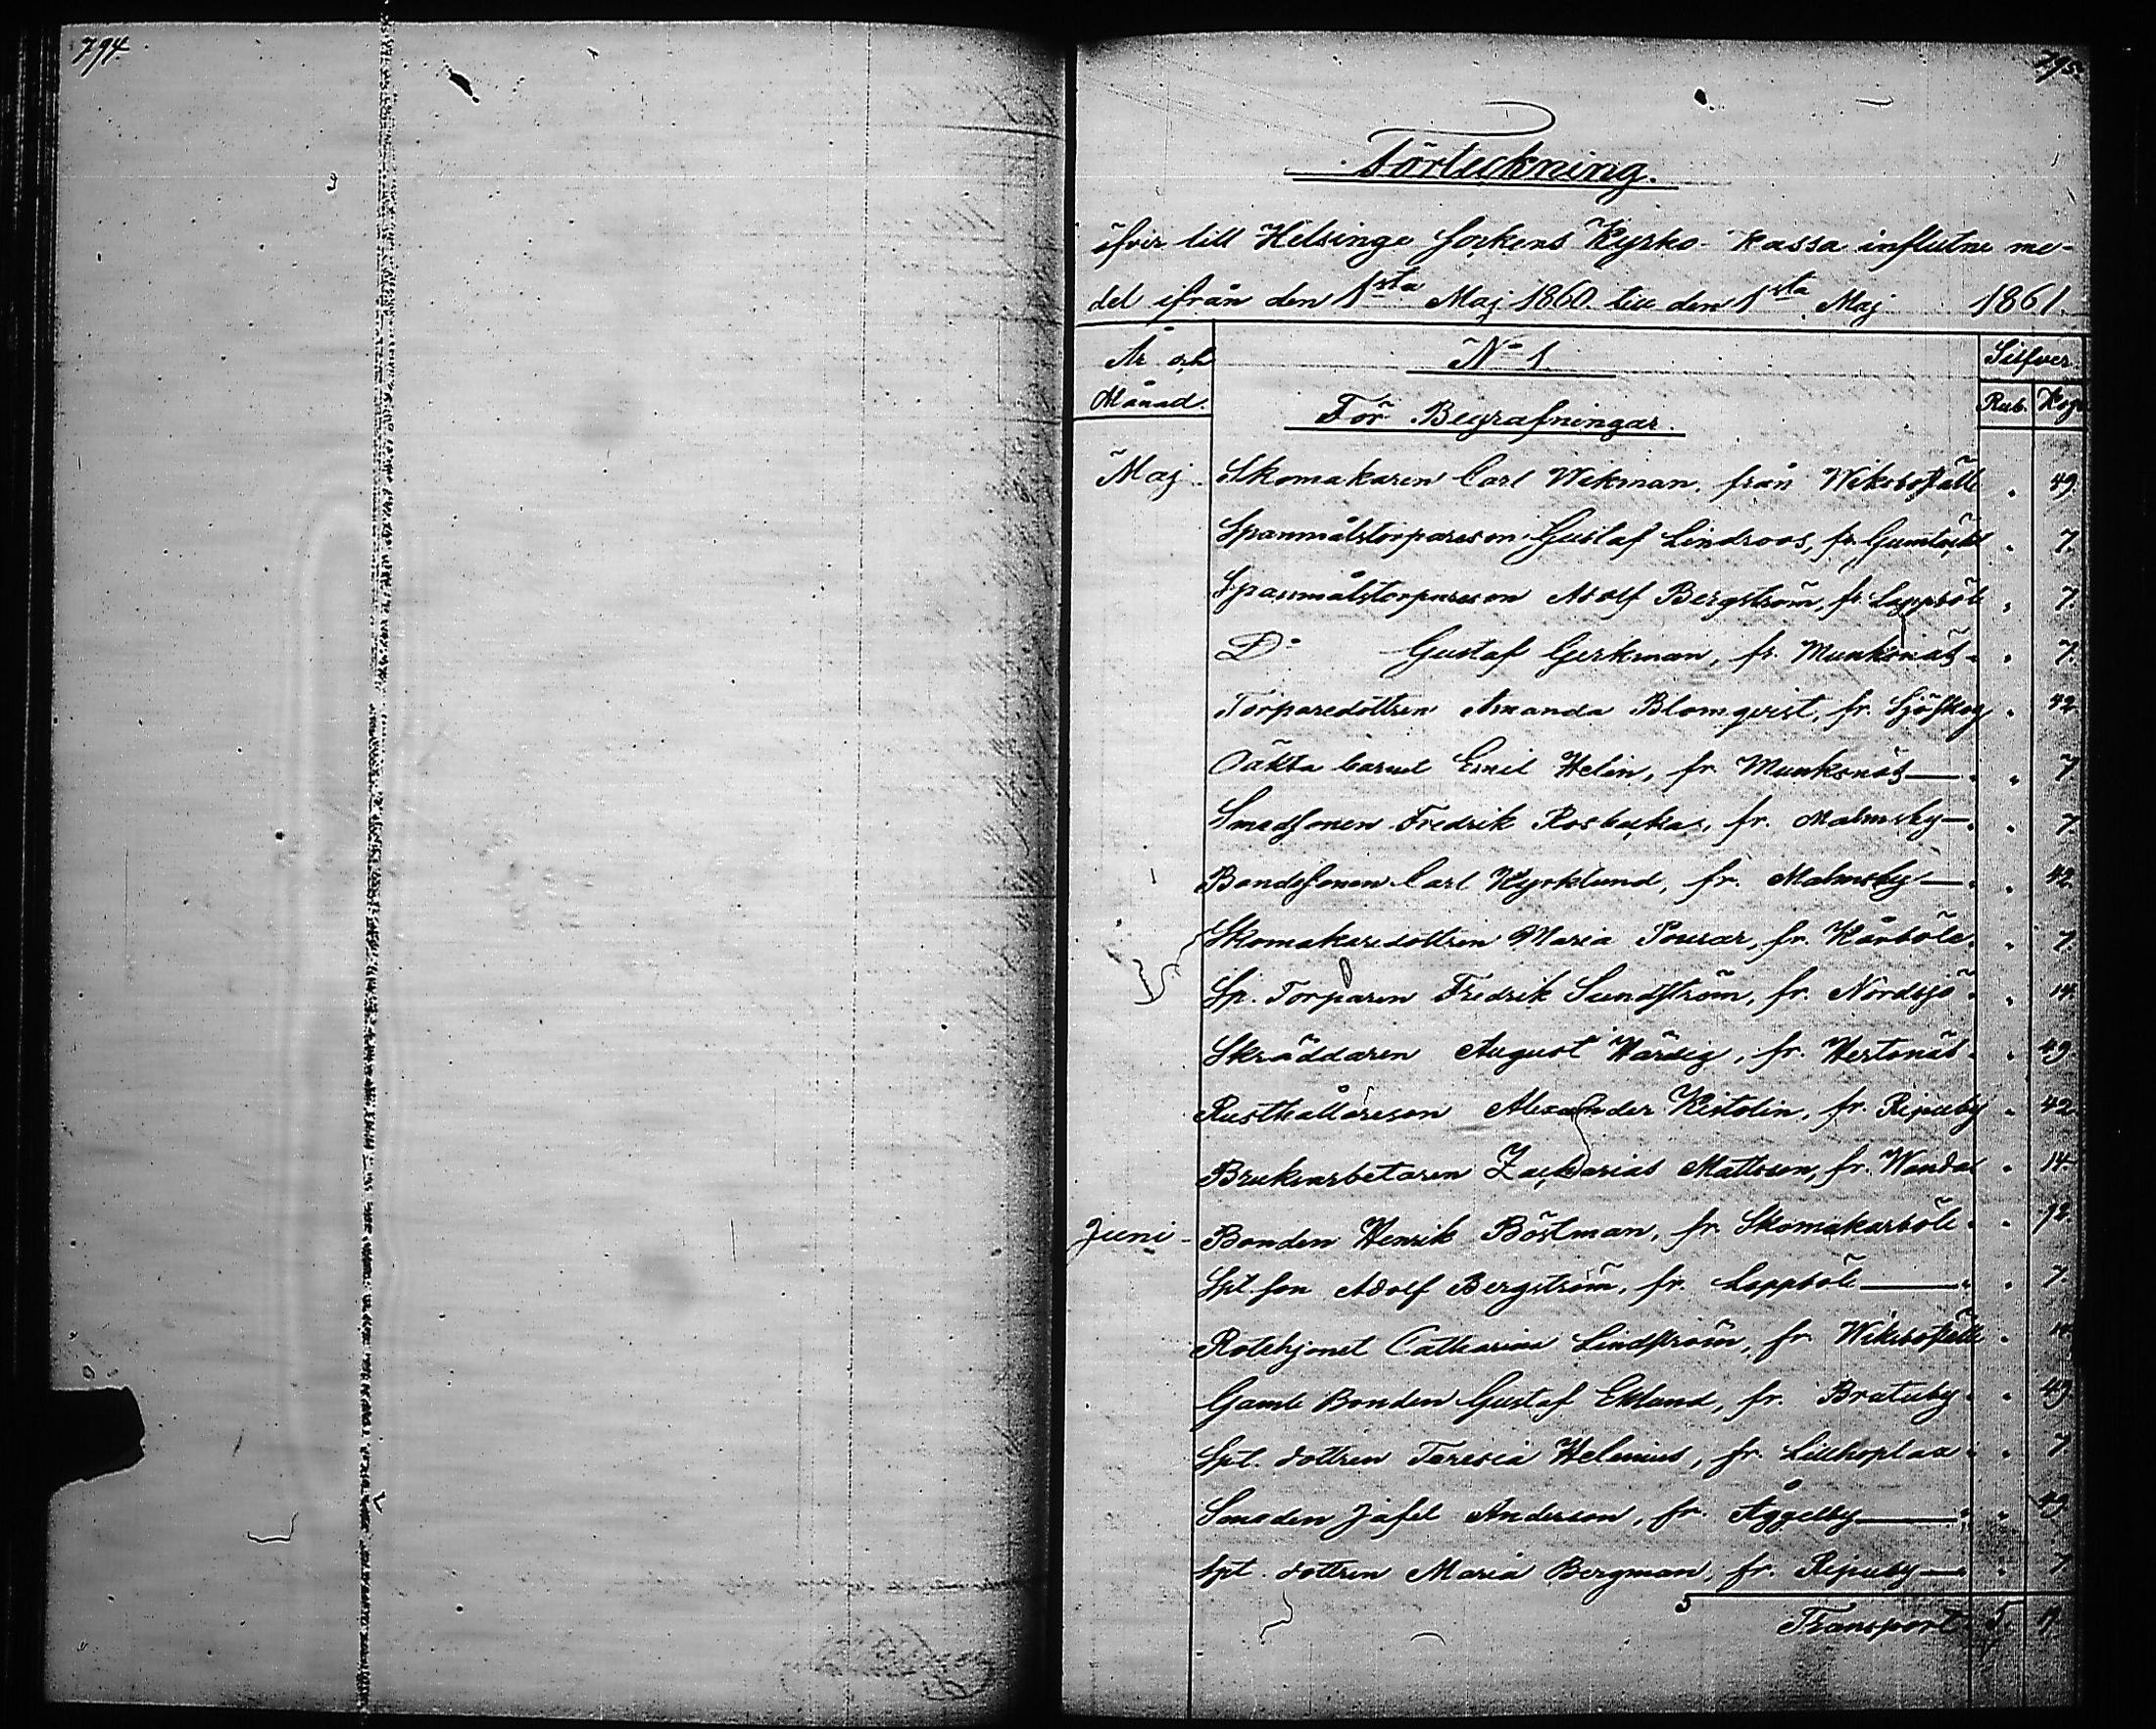 794.
795.
Förteckning.
öfver till Helsinge Sockens Kyrko-Kassa influtne me-
del ifrån den 1sta Maj 1860 till den 1sta Maj 1861.
År och Månad. No 1. Silfver.
För Begrafningar. Rub. Kop.
Maj Skomakaren Carl Wekman, från Wiksboställe " 49.
Spanmålstorpareson Gustaf Lindroos, fr. Gumtäckt " 7.
Spanmålstorpareson Adolf Bergström, fr. Lappböle " 7.
Do Gustaf Gerkman, fr. Munksnäs " 7.
Torparedottren Amanda Blomqvist, fr. Sjöskog " 42.
Oäkta barnet Emil Helin, fr. Munksnäs " 7
Smedsonen Fredrik Rosbackas, fr. Malmsby " 7
Bondesonen Carl Kyrklund, fr. Malmsby " 42
Skomakaredottren Maria Pousar, fr. Kårböle " 7.
Sp. Torparen Fredrik Sundström, fr. Nordsjö " 14.
Skräddaren August Härdig, fr. Hertonäs " 49
Rusthållareson Alexander Kistolin, fr. Ripuby " 42
Bruksarbetaren Zackarias Mattsson, fr. Wanda " 14
Juni Bonden Henrik Böstman, fr. Skomakarböle " 72.
Spt. son Adolf Bergström, fr. Lappböle " 7.
Rotehjonet Catharina Lindström, fr. Wiksboställe " 14
Gamle Bonden Gustaf Eklund, fr. Brutuby " 49
Spt. dottren Taresia Helenius, fr. Lillhoplax " 7
Smeden Jafet Anderson, fr. Åggelby " 49
Spt. dottren Maria Bergman, fr. Ripuby " 7
Transport 5